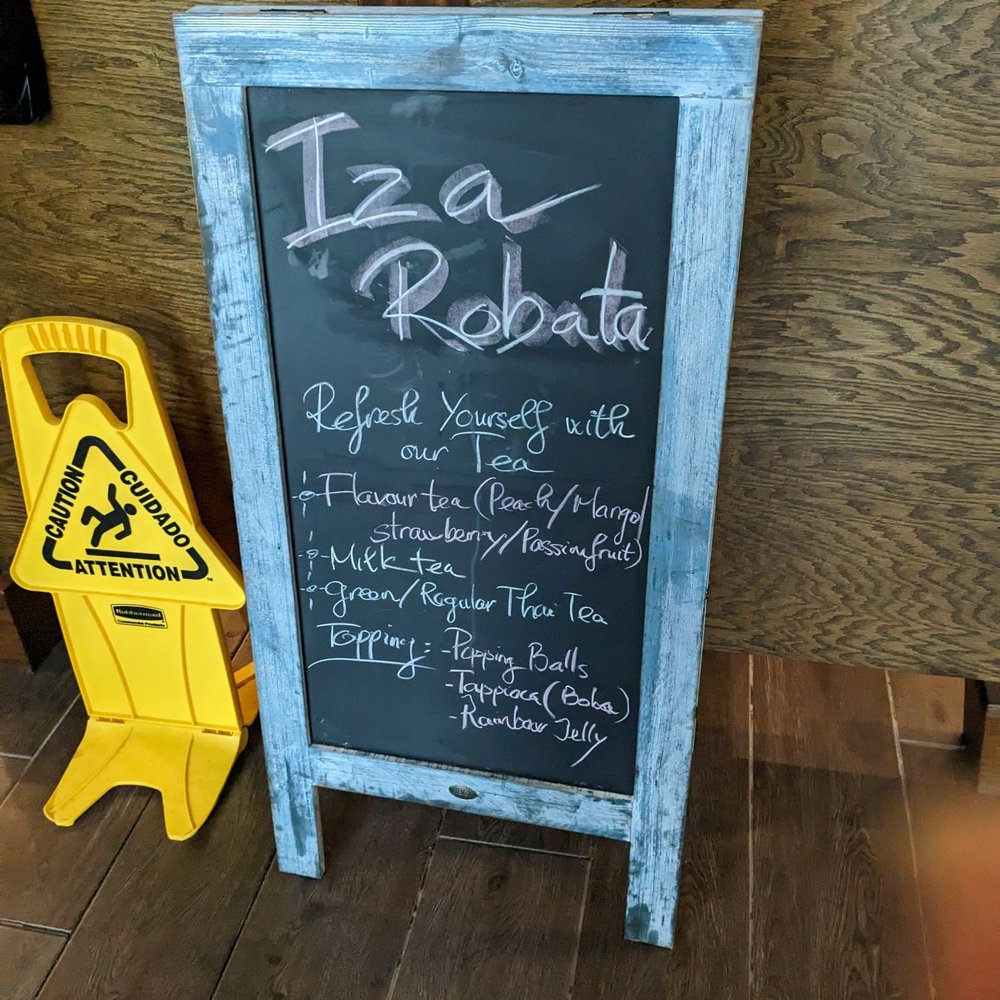 Iza
Robata
Refresh Yourself with
our Tea
- Flavour tea (Peach/Mango/
strawberry/Passionfruit)
- Milk tea
- green/Regular Thai Tea
Topping: - Popping Balls
- Tappioca (Boba)
- Rainbow Jelly
CAUTION
CUIDADO
ATTENTION
Rubbermaid
Commercial Products